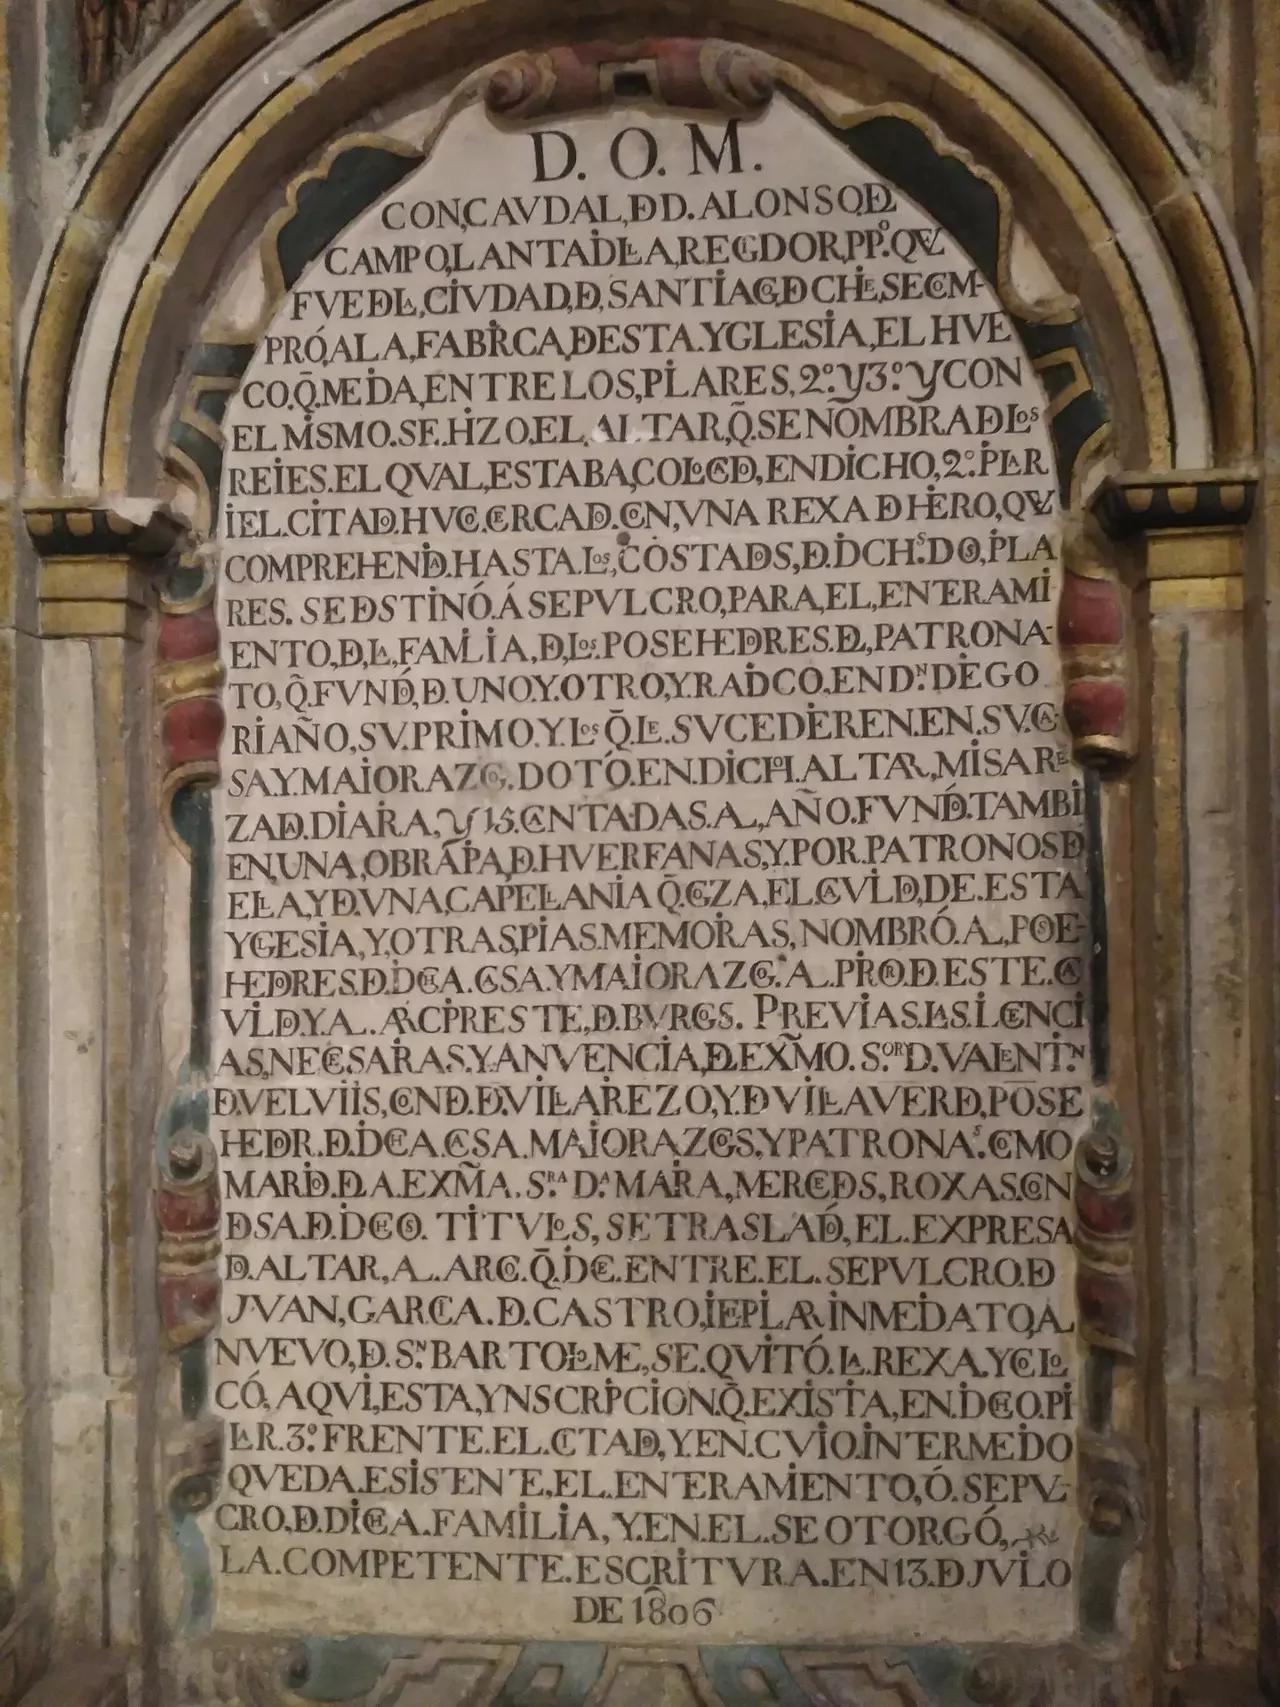 D. O. M.
CON,CAVDAL,DE D. ALONSO,DEL
CAMPO,LANTADILLA,REGIDOR,PP.º QVE
FVE DE LA,CIVDAD,DE,SANTIAGO,DE CHILE,SE COM-
PRÓ,A LA,FABRICA,DE ESTA.YGLESIA,EL HVE
CO.Q̃.MEDIA,ENTRE LOS,PILARES,2º.Y3º.Y CON
EL MISMO.SE.HIZO.EL,ALTAR,Q̃.SE NOMBRA DE LOS
REIES.EL QVAL,ESTABA,COLOCADO,EN DICHO,2º.PILAR
I EL.CITADO.HVECO.CERCADO.CON,VNA REXA DE HIERRO,QVE
COMPREHENDIA.HASTA.LOS,COSTADOS,DE.DICHOS.DOS,PILA
RES. SE DESTINÓ.Á SEPVLCRO,PARA,EL,ENTERRAMI
ENTO,DE,LA,FAMILIA,DE,LOS.POSEHEDORES.DEL,PATRONA-
TO,Q̃.FVNDÓ,DE.UNO.Y.OTRO,Y.RADICO,EN Dⁿ.DIEGO
RIAÑO,SV.PRIMO.Y.LOS Q̃.LE.SVCEDIEREN.EN.SV.CA
SA.Y.MAIORAZGO.DOTÓ.EN.DICHO.ALTAR,MISA RE
ZADA.DIARIA,Y 15.CANTADAS.AL,AÑO.FVNDÓ.TAMBI
EN,UNA,OBRA PIA,DE.HVERFANAS,Y.POR.PATRONOS DE
ELLA,Y DE.VNA,CAPELLANIA Q̃.GOZA,EL,CAVILDO,DE.ESTA
YGLESIA,Y,OTRAS,PIAS.MEMORIAS,NOMBRÓ.AL,POSE-
HEDORES.DE.DICHA.CASA.Y MAIORAZGO.AL.PRIOR.DE.ESTE.CA
VILDO.Y.AL.ARCIPRESTE,DE.BVRGOS. PREVIAS.LAS.LICENCI
AS,NECESARIAS.Y.ANVENCIA,DEL.EXM̃O. S.OR D.VALENTIN
DE.VELVIIS,CONDE.DE.VILLARIEZO,Y.DE VILLAVERDE,POSE
HEDOR.DE.DICHA.CASA.MAIORAZGOS,Y PATRONATOS.COMO
MARIDO.DE LA.EXM̃A. S.RA D.A MARIA,MERCEDES,ROXAS.CON
DESA.DE.DICHOS. TITVLOS, SE TRASLADÓ,EL.EXPRESA
DO.ALTAR,AL.ARCO.Q̃.DICE.ENTRE.EL.SEPVLCRO.DE
JVAN,GARCIA.DE.CASTRO,I EL PILAR INMEDIATO,AL
NVEVO,DE.S.N BARTOLOME,SE.QVITÓ.LA.REXA.Y COLO
CÓ,AQVI,ESTA,YNSCRIPCION.Q̃.EXISTIA,EN.DICHO.PI
LAR.3º.FRENTE.EL.CITADO,Y.EN.CVIO.INTERMEDIO
QVEDA.ESISTENTE,EL.ENTERRAMIENTO,Ó.SEPVL-
CRO,DE.DICHA.FAMILIA,Y.EN.EL.SE OTORGÓ,
LA.COMPETENTE.ESCRITVRA.EN 13.DE JVLIO
DE 1806